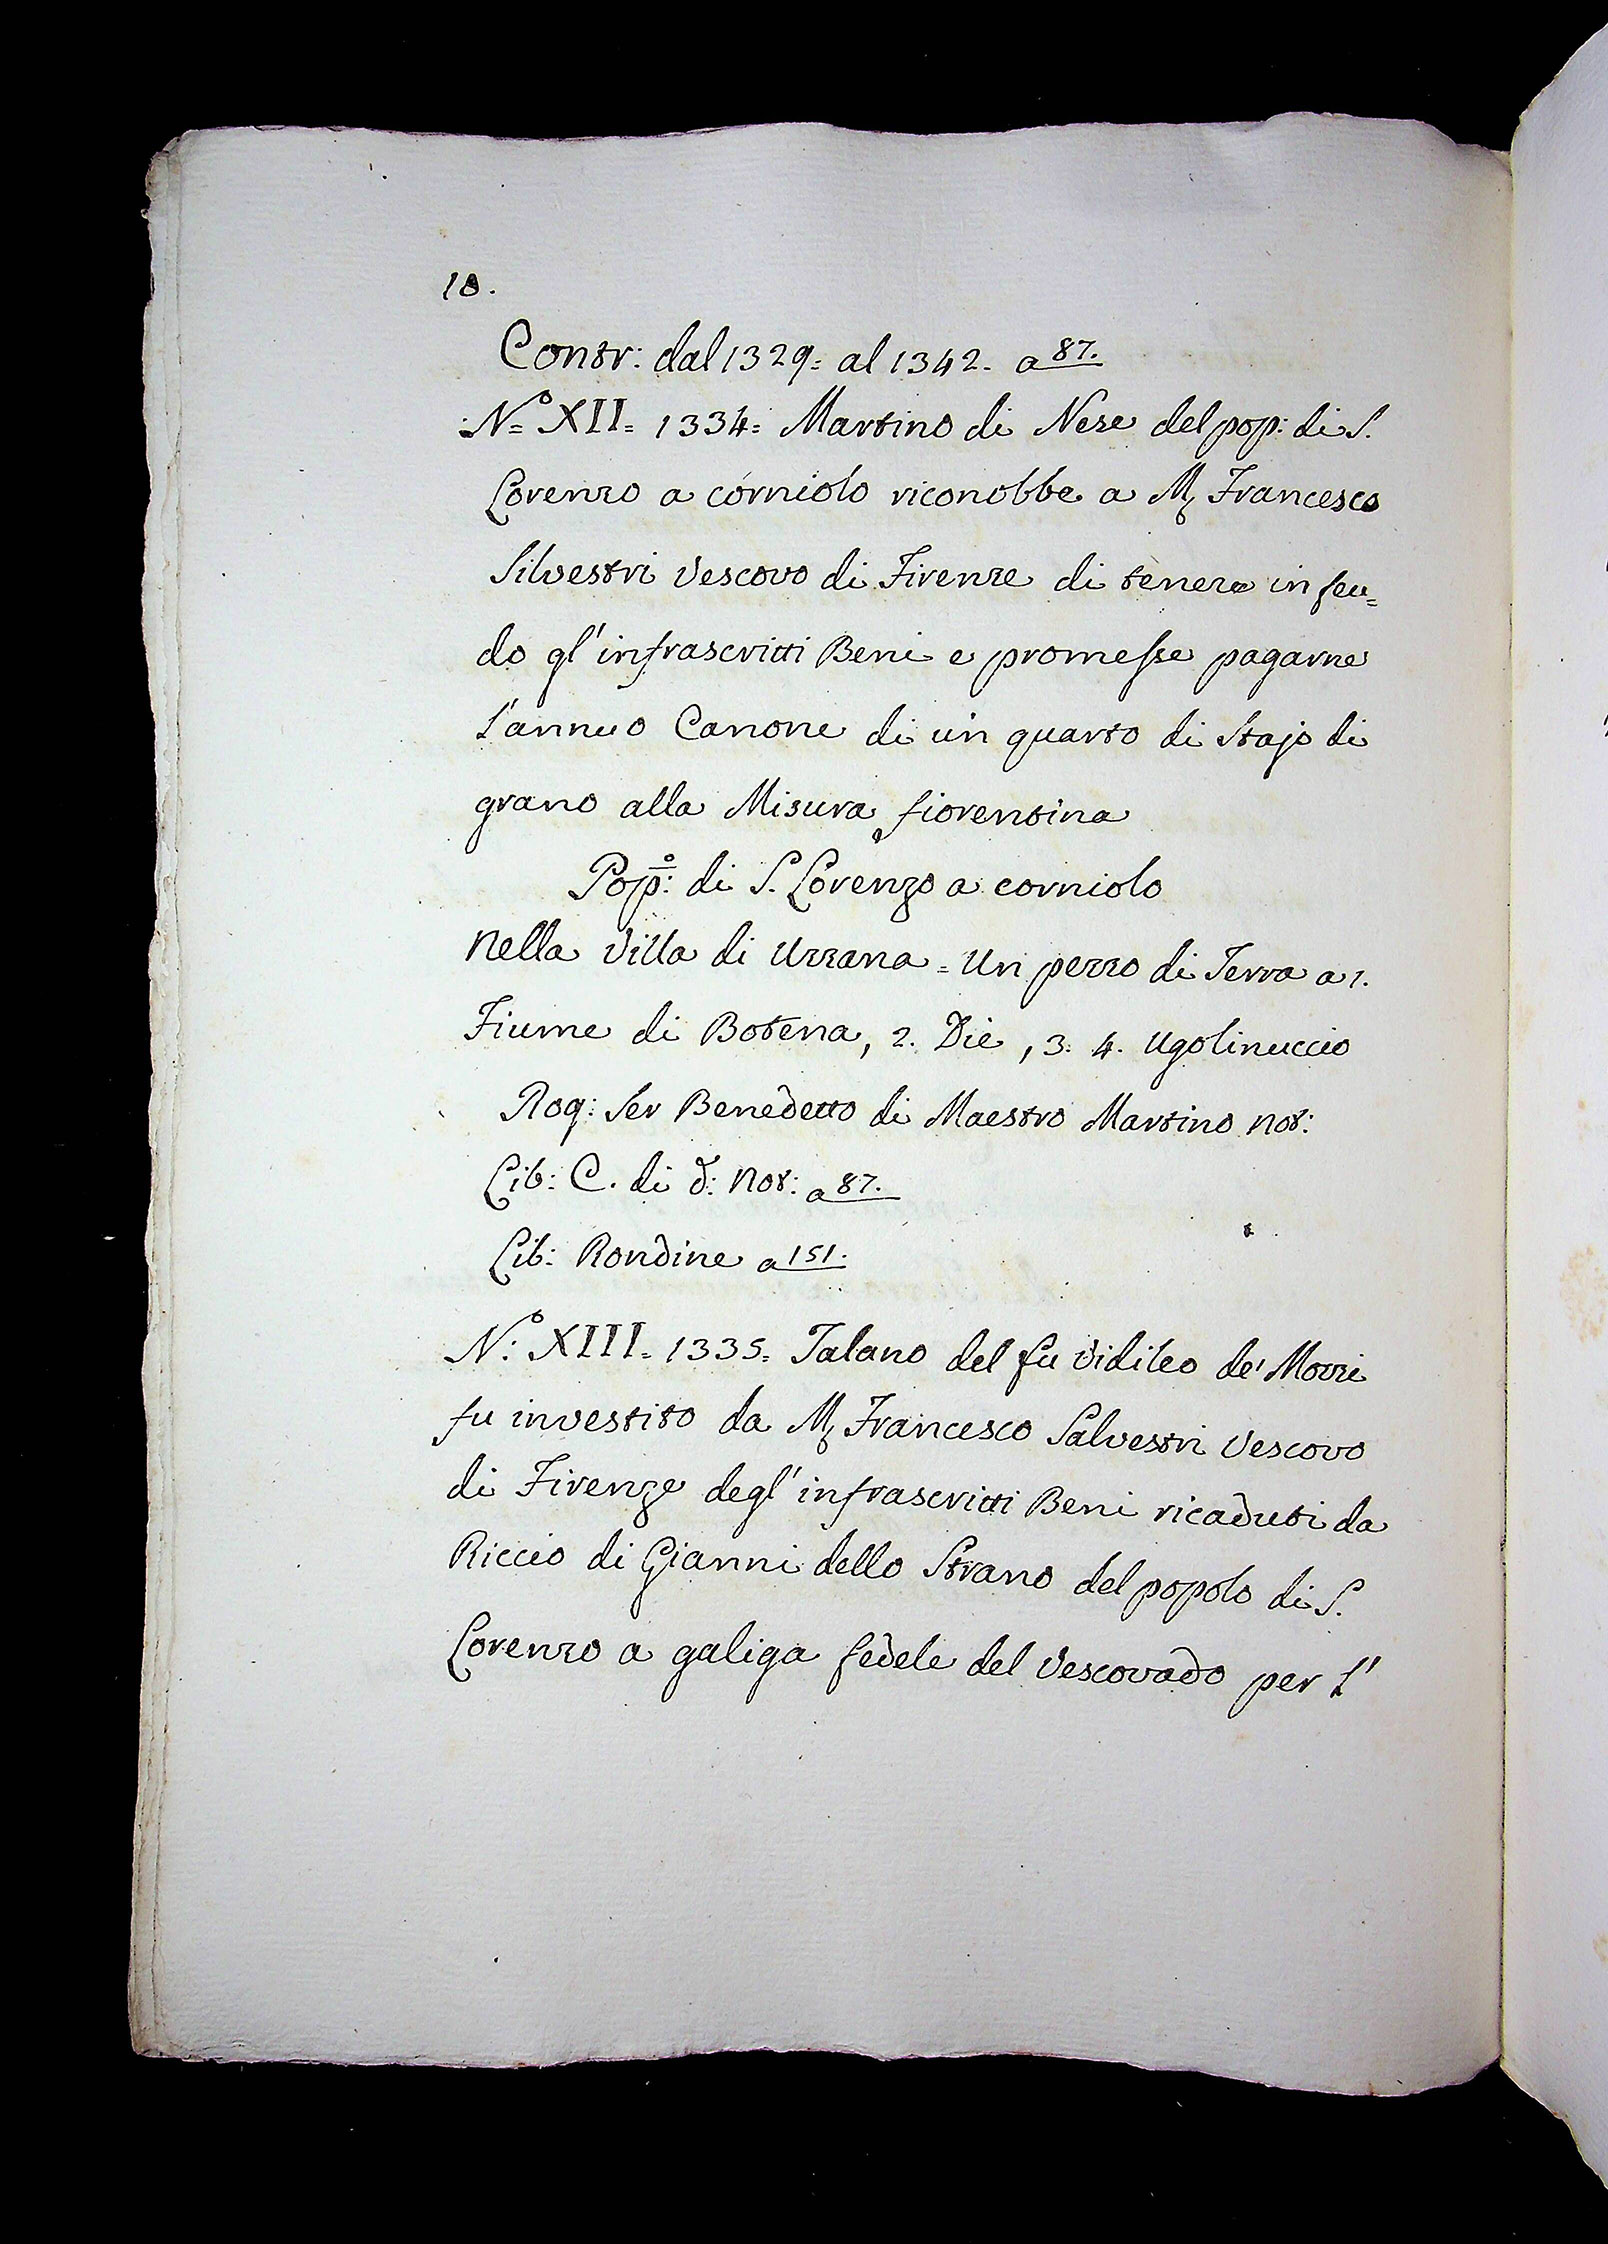 10.
Contr: dal 1329= al 1342. a 87.
N.º XII= 1334= Martino di Nese del pop: di S.
Lorenzo a corniolo riconobbe a M. Francesco
Silvestri Vescovo di Firenze di tenere in feu=
do gl'infrascritti Beni e promesse pagarne
l'annuo Canone di un quarto di Stajo di
grano alla Misura fiorentina
Popº: di S. Lorenzo a corniolo
Nella Villa di Uzzana = Un pezzo di Terra a 1.
Fiume di Botena, 2. Vie, 3. 4. Ugolinuccio
Rog: Ser Benedetto di Maestro Martino Not:
Lib: C. di d: Not: a 87.
Lib: Rondine a 151.
N.º XIII= 1335= Talano del fu Vidileo de' Mozzi
fu investito da M. Francesco Salvestri Vescovo
di Firenze degl'infrascritti Beni ricaduti da
Riccio di Gianni dello Strano del popolo di S.
Lorenzo a galiga fedele del Vescovado per l'